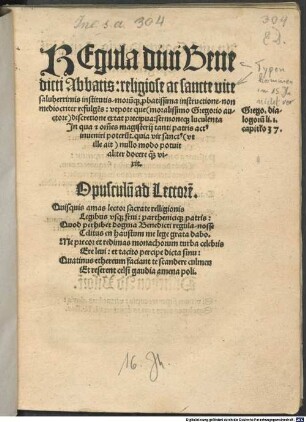 Inc s.a. 304
304
REgula diui Bene
dicti Abbatis: religiose ac sancte vite
saluberrimis institutis moruͤqꝫ ꝓbatissima instructione non
mediocriter refulgēs: vtpote que (moralissimo Gregorio au
ctore) discretione extat precipua: sermoneqꝫ luculenta
In qua ⁊ om̄es magisterij tanti patris act
inueniri poterūt. quia vir sanctꝰ (vt
ille ait) nullo modo potuit
aliter docere qꝫ vi-
xit.
Grego. dia-
logorū li. ij.
capitlo 37.
Opusculū ad Lectorē.
Quisquis amas lector sacrate religionis
Legibus vsqꝫ frui: parthenicisqꝫ patris:
Quod perhibet dogma Benedicti regula: nosse
Celitus en haustum me lege grata dabo.
Me precor et redimas monachorum turba celebris
Ere leui: et tacito percipe dicta sinu:
Quatinus ethereum faciant te scandere culmen
Et reserent celsi gaudia amena poli.
16. Jh.